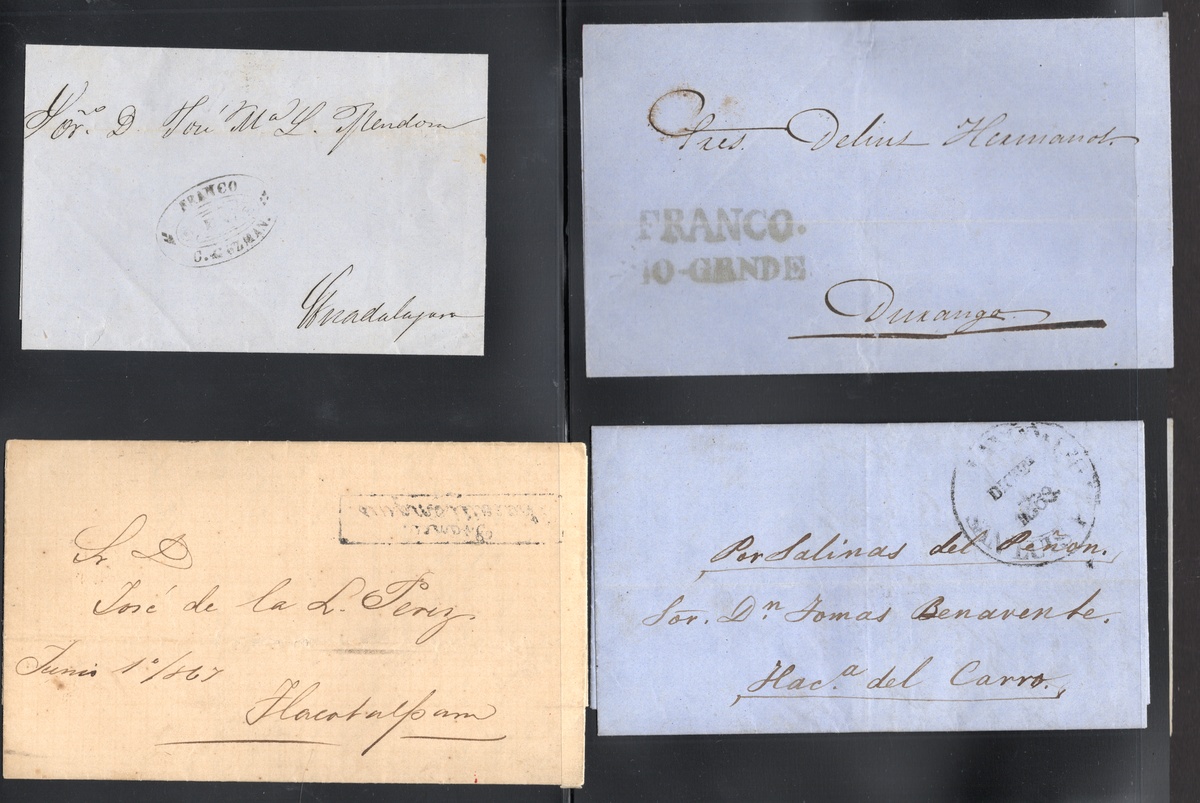 Sor. D. José Ma L. Mendoza
FRANCO
C. GUZMAN.
Guadalajara
Sres. Delius Hermanos.
FRANCO.
IO-GRNDE
Durango.
Franco
Sr. D
José de la L. Perez
Junio 1º/867
Tlacotalpam
SAN LUIS P
Por Salinas del Peñon.
Sor. Dn. Tomas Benavente.
Hac.a del Carro.